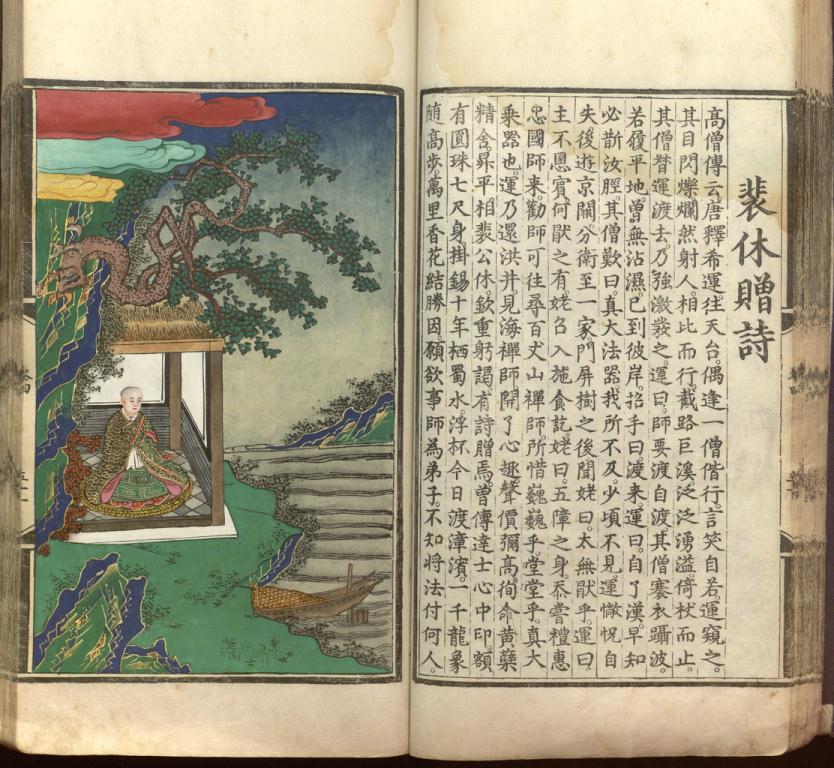 裴休贈詩
高僧傳云。唐釋希運往天台。偶逢一僧偕行。言笑自若。運窺之。
其目閃爍爛然射人。相比而行。截路巨溪泛泛湧溢。倚杖而止。
其僧督運渡去。乃強激發之。運曰。師要渡自渡。其僧褰衣躡波。
若履平地。曾無沾濕。已到彼岸。招手曰。渡来。運曰。自了漢。早知
必斮汝脛。其僧歎曰。真大法器。我所不及。少頃不見。運惘怳自
失。後遊京關。分衛至一家。門屏樹之後聞姥曰。太無猒乎。運曰。
主不恩賓。何猒之有。姥召入施食訖。姥曰。五障之身。忝嘗禮惠
忠國師来。勸師可往尋百丈山禪師。所惜巍巍乎。堂堂乎。真大
乗器也。運乃還洪井見海禪師。開了心趣。聲價彌高。徇命黄蘗
精舍。昇平相裴公休。欽重躬謁。有詩贈焉。曾傳達士心中印。額
有圓珠七尺身。掛錫十年栖蜀水。浮杯今日渡漳濱。一千龍象
随高歩。萬里香花結勝因。願欲事師為弟子。不知将法付何人。